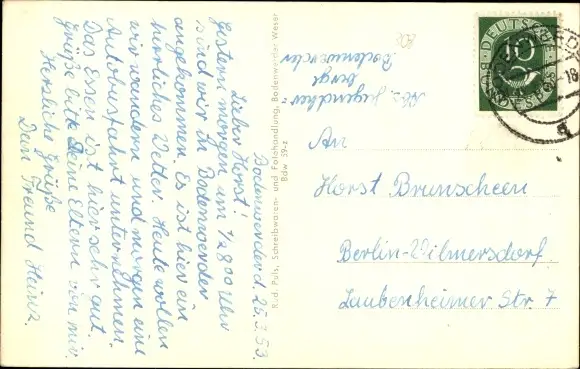 Bodenwerder d. 25.7.53.
Lieber Horst!
Gestern morgen um 1/2 8 00 Uhr
sind wir in Bodenwerder
angekommen. Es ist hier ein
herrliches Wetter. Heute wollen
wir wandern und morgen eine
Autobusfahrt unternehmen.
Das Essen ist hier sehr gut.
Grüße bitte Deine Eltern von mir.
Herzliche Grüße
Dein Freund Heinz.
Rud. Puls, Schreibwaren- und Fotohandlung, Bodenwerder Weser
Bdw 59-z
Jugendher-
berge
Bodenwerder
DEUTSCHE
BUNDESPOST
10
An
Horst Brunscheen
Berlin-Wilmersdorf.
Laubenheimer Str. 7